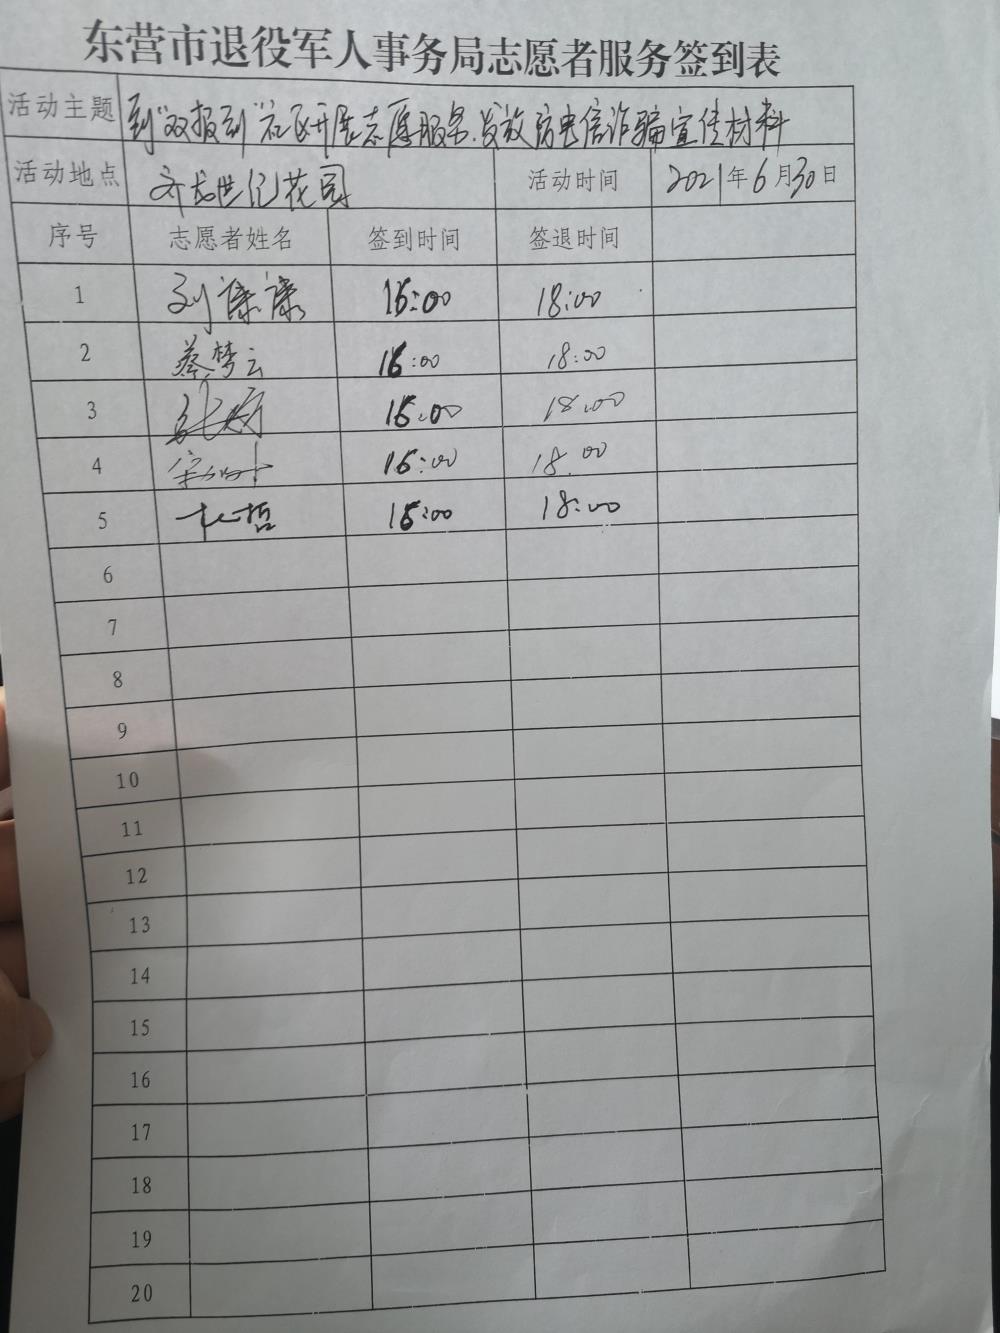 东营市退役军人事务局志愿者服务签到表
活动主题 到"双报到"社区开展志愿服务.发放防电信诈骗宣传材料
活动地点 世纪花园 活动时间 2021年6月30日
序号 志愿者姓名 签到时间 签退时间
1 刘 :00 18:00
2 蔡梦云 :00 18:00
3 张 :00 18:00
4 :00 18:00
5 哲 :00 18:00
6
7
8
9
10
11
12
13
14
15
16
17
18
19
20